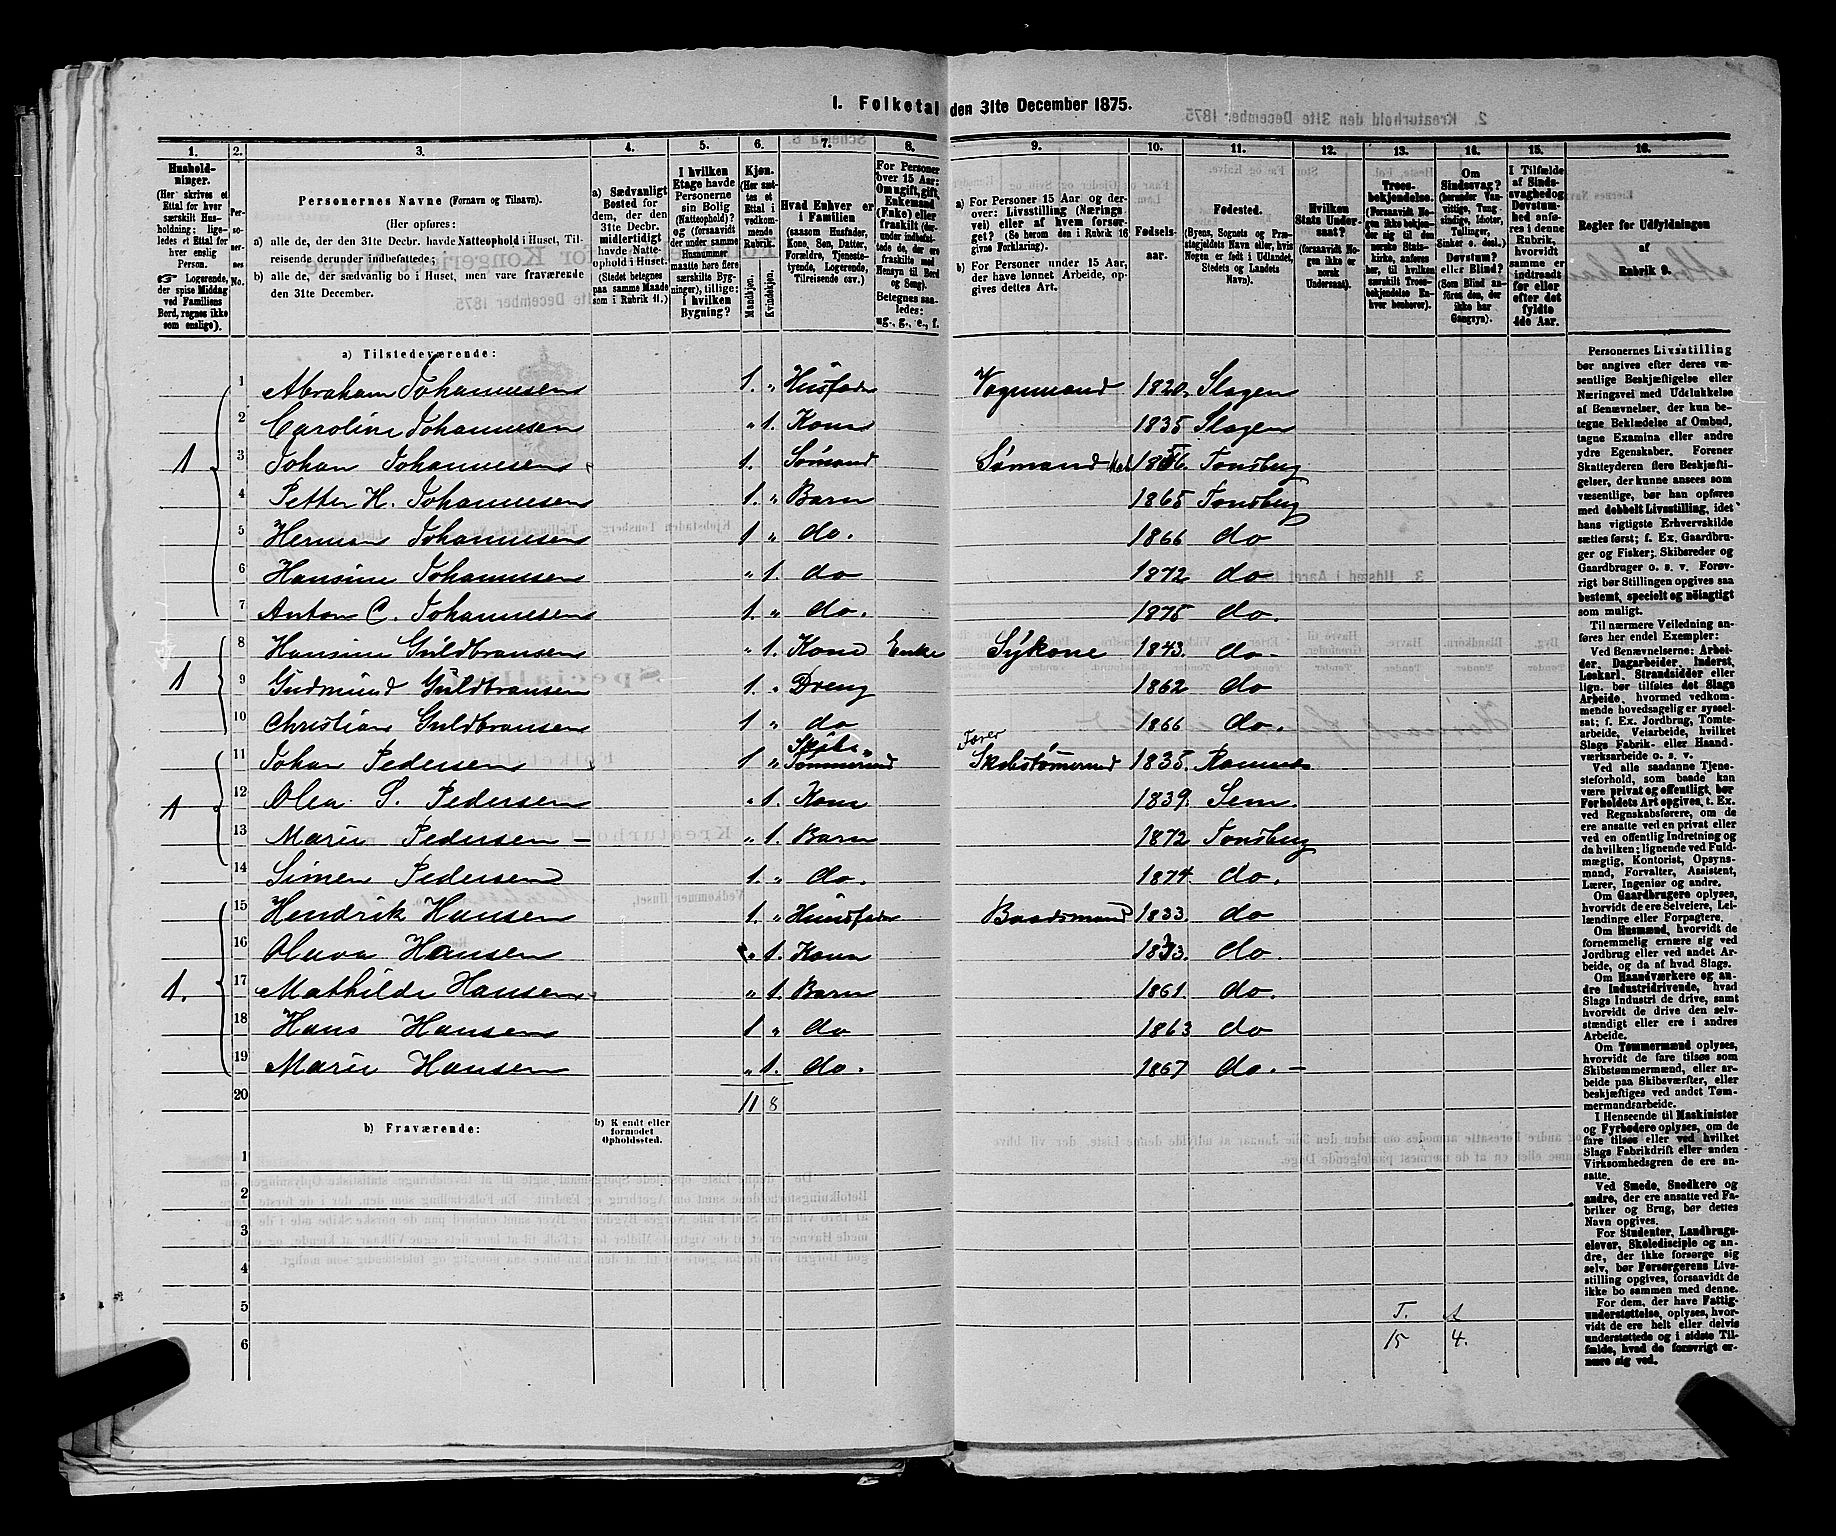 I. Folketal den 31te December 1875.
1. 2. 3. 4. 5. 6. 7. 8. 9. 10. 11. 12. 13. 14. 15. 16.
Husholdninger.
(Her skrives et Ettal for hver særskilt Husholdning; ligeledes et Ettal for hver enslig Person.
☞ Logerende, der spise Middag ved Familiens Bord, regnes ikke som enslige).
Personernes No.
Personernes Navne (Fornavn og Tilnavn).
(Her opføres:
a) alle de, der den 31te Decbr. havde Natteophold i Huset, Tilreisende derunder indbefattede;
b) alle de, der sædvanlig bo i Huset, men vare fraværende den 31te December.
a) Sædvanligt Bosted for dem, der den 31te Decbr. midlertidigt havde Natteophold i Huset. (Stedet betegnes paa samme Maade som i Rubrik 11.)
I hvilken Etage havde Personerne sin Bolig (Natteophold)? og (forsaavidt der under samme Husnummer maatte høre flere særskilte Bygninger), tillige: i hvilken Bygning?
Kjøn. (Her sættes et Ettal i vedkommende Rubrik.
Mandkjøn. Kvindekjøn.
Hvad Enhver er i Familien
(saasom Husfader, Kone, Søn, Datter, Forældre, Tjenestetyende, Logerende, Tilreisende osv.)
For Personer over 15 Aar: Om ugift, gift, Enkemand (Enke) eller fraskilt
Betegnes saaledes: ug., g., e., f.
a) For Personer 15 Aar og derover: Livsstilling (Næringsvei) eller af hvem forsørget? (Se herom den i Rubrik 16 givne Forklaring).
b) For Personer under 15 Aar, der have lønnet Arbeide, opgives dettes Art.
Fødselsaar.
Fødested.
(Byens, Sognets og Præstegjeldets Navn eller, hvis Nogen er født i Udlandet, Stedets og Landets Navn).
Hvilken Stats Undersaat?
(forsaavidt Nogen ikke er norsk Undersaat).
Troesbekjendelse.
(Forsaavidt Nogen ikke bekjender sig til den norske Statskirke, anføres her, til hvilken særskilt Troesbekjendelse Enhver henhører).
Om Sindssvag? (herunder Vanvittige, Tungsindige, Idioter, Tullinger, Sinker o. desl.) Døvstum? eller Blind? (Som Blind anføres den, der ikke har Gangsyn).
I Tilfælde af Sindssvaghed og Døvstumhed anføres i denne Rubrik, hvorvidt samme er indtraadt før eller efter det fyldte 4de Aar.
Regler for Udfyldningen
af
Rubrik 9.
a) Tilstedeværende:
1 1 Abraham Johannesen 1. „ Husfader Vognmand 1820. Slagen
2 Caroline Johannesen „ 1. Kone 1835 Slagen
3 Johan Johannesen 1. Sømand Sømand 1856. Tønsberg
4 Petter H. Johannesen 1. „ Barn 1865 Tønsberg
5 Herman Johannesen 1 „ do. 1866 do
6 Hansine Johannesen „ 1. do 1872 do
7 Anton C. Johannesen 1. „ do. 1875 do.
1 8 Hansine Guldbransen „ 1. Kone Enke Sykone 1843. do-
9 Gudmund Guldbransen 1. „ Dreng 1862 do
10 Christian Guldbransen 1 „ do 1866 do.
1 11 Johan Pedersen 1 „ Skibs Tømmermd Fører Skibstømermd 1835. Ramnes
12 Olea S. Pedersen „ 1. Kone 1839. Sem.
13 Marie Pedersen - „ 1. Barn 1872 Tønsberg
14 Simen Pedersen 1. „ do. 1874. do.
1. 15 Hendrik Hansen 1. „ Huusfader Baadsmand 1833. do
16 Oleva Hansen „ 1. Kone 1833. do.
17 Mathilde Hansen „ 1. Barn 1861. do.
18 Hans Hansen 1 „ do 1863 do
19 Marie Hansen „ 1. do. 1867 do. -
20 11 8
b) Fraværende:
b) Kjendt eller formodet Opholdssted.
1
2
3
4
5
6
T. A
15 4.
Personernes Livsstilling
bør angives efter deres væ-
sentlige Beskjæftigelse eller
Næringsvei med Udelukkelse
af Benævnelser, der kun be-
tegne Beklædelse af Ombud,
tagne Examina eller andre
ydre Egenskaber. Forener
Skatteyderen flere Beskjæfti-
gelser, der kunne ansees som
væsentlige, bør han opføres
med dobbelt Livsstilling, idet
hans vigtigste Erhvervskilde
sættes først; f. Ex. Gaardbru-
ger og Fisker; Skibsreder og
Gaardbruger o. s. v. Forøv-
rigt bør Stillingen opgives saa
bestemt, specielt og nöiagtigt
som muligt.
Til nærmere Veiledning an-
føres her endel Exempler:
Ved Benævnelserne: Arbei-
der, Dagarbeider, Inderst,
Løskarl, Strandsidder eller
lign. bør tilføies det Slags
Arbeide, hvormed vedkom-
mende hovedsagelig er syssel-
sat; f. Ex. Jordbrug, Tomte-
arbeide, Veiarbeide, hvilket
Slags Fabrik- eller Haand-
værksarbeide o. s. v.
Ved alle saadanne Tjene-
steforhold, som baade kan
være privat og offentligt, bør
Forholdets Art opgives, t. Ex.
ved Regnskabsførere, om de
ere ansatte ved en privat eller
ved en offentlig Indretning og
da hvilken; lignende ved Fuld-
mægtig, Kontorist, Opsyns-
mand, Forvalter, Assistent,
Lærer, Ingeniør og andre.
Om Gaardbrugere oplyses,
hvorvidt de ere Selveiere, Lei-
lændinge eller Forpagtere.
Om Husmænd, hvorvidt de
fornemmelig ernære sig ved
Jordbrug eller ved andet Ar-
beide, og da af hvad Slags.
Om Haandværkere og an-
dre Industridrivende, hvad
Slags Industri de drive, samt
hvorvidt de drive den selv-
stændigt eller ere i andres
Arbeide.
Om Tømmermænd oplyses,
hvorvidt de fare tilsøs som
Skibstømmermænd, eller ar-
beide paa Skibsværfter, eller
beskjæftiges ved andet Tøm-
mermandsarbeide.
I Henseende til Maskinister
og Fyrbødere oplyses, om de
fare tilsøs eller ved hvilket
Slags Fabrikdrift eller anden
Virksomhedsgren de ere an-
satte.
Ved Smede, Snedkere og
andre, der ere ansatte ved Fa-
briker og Brug, bør dettes
Navn opgives.
For Studenter, Landbrugs-
elever, Skoledisciple og an-
dre, der ikke forsørge sig
selv, bør Forsørgerens Livs-
stilling opgives, forsaavidt de
ikke bo sammen med denne.
For dem, der have Fattig-
understøttelse, oplyses, hvor-
vidt de ere helt eller delvis
understøttede og i sidste Til-
fælde, hvad de forøvrigt er-
nære sig ved.